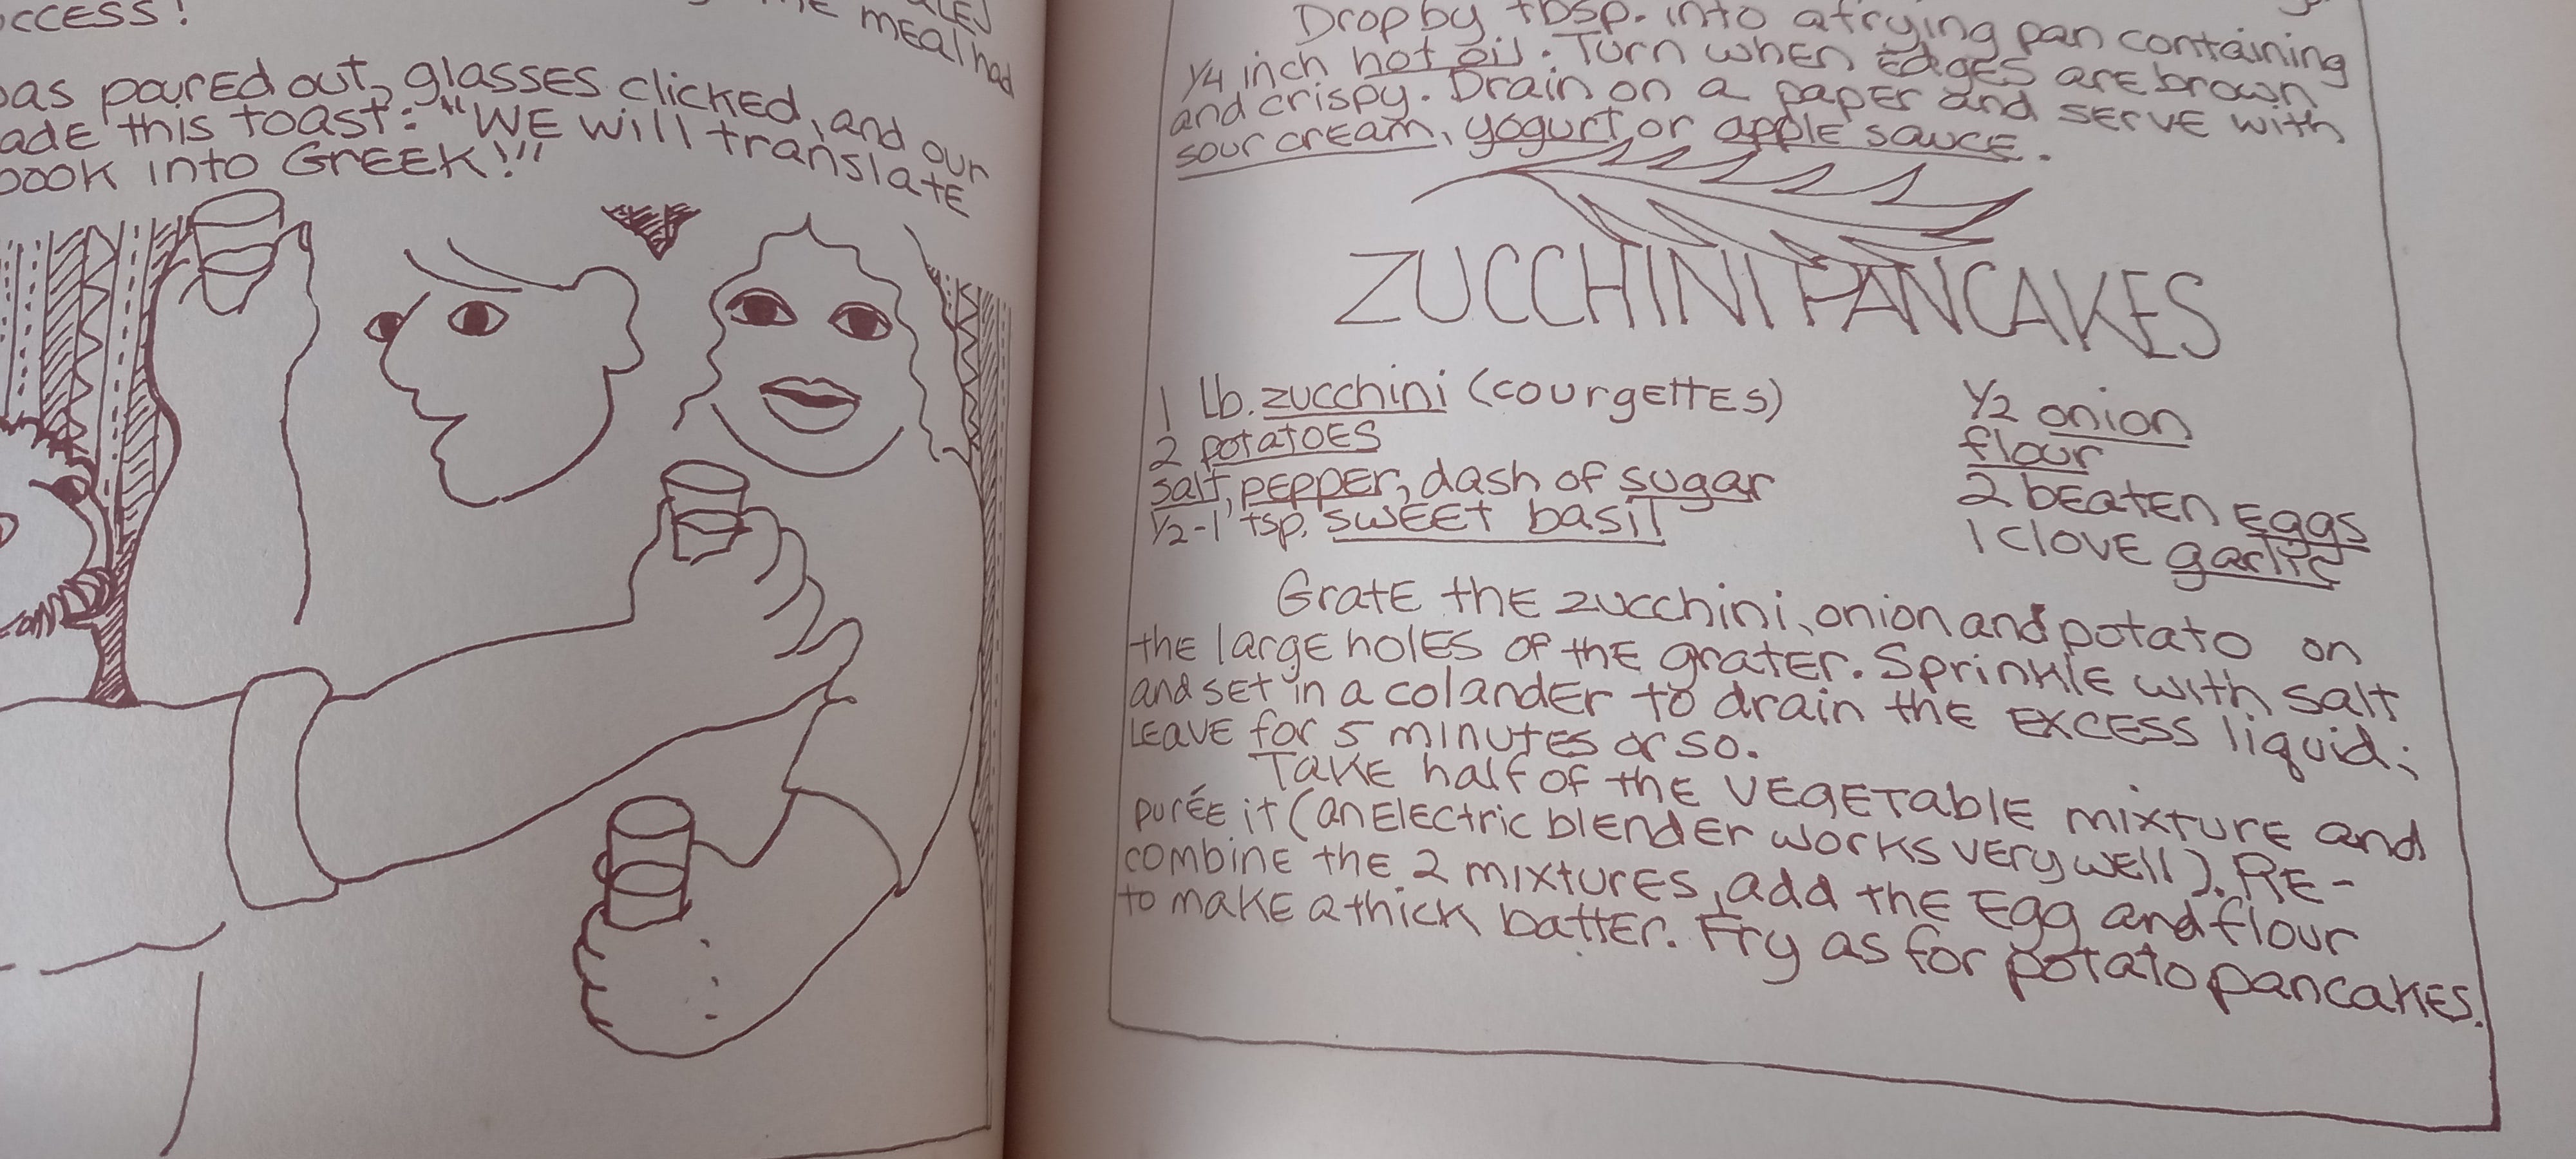 OCCESS!
THE MEAL had
as poured out, glasses clicked, and our
ade this toast: "WE will translate
book into GREEK!"
Drop by tbsp. into a frying pan containing
1/4 inch hot oil. Turn when edges are brown
and crispy. Drain on a paper and serve with
sour cream, yogurt or apple sauce.
ZUCCHINI PANCAKES
1 Lb. zucchini (courgettes)
2 potatoes
salt, pepper, dash of sugar
1/2-1 tsp. sweet basil
1/2 onion
flour
2 beaten eggs
1 clove garlic
Grate the zucchini, onion and potato on
the large holes of the grater. Sprinkle with salt
and set in a colander to drain the excess liquid;
Leave for 5 minutes or so.
Take half of the vegetable mixture and
purée it (an electric blender works very well). Re-
combine the 2 mixtures, add the egg and flour
to make a thick batter. Fry as for potato pancakes.